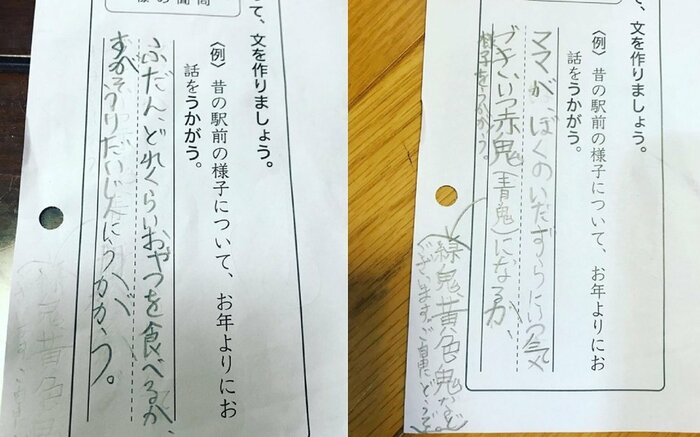 て、文を作りましょう。
〈例〉昔の駅前の様子について、お年よりにお
話をうかがう。
ふだん、どれくらいおやつを食べるか、
すがそうりだいじんにうかがう。
て、文を作りましょう。
〈例〉昔の駅前の様子について、お年よりにお
話をうかがう。
ママが、ぼくのいだずらにいつ気
づき、いつ赤鬼(青鬼)になるか、
様子をうかがう。
(緑鬼黄色鬼なども
ございます。ご自由にどうぞ。)